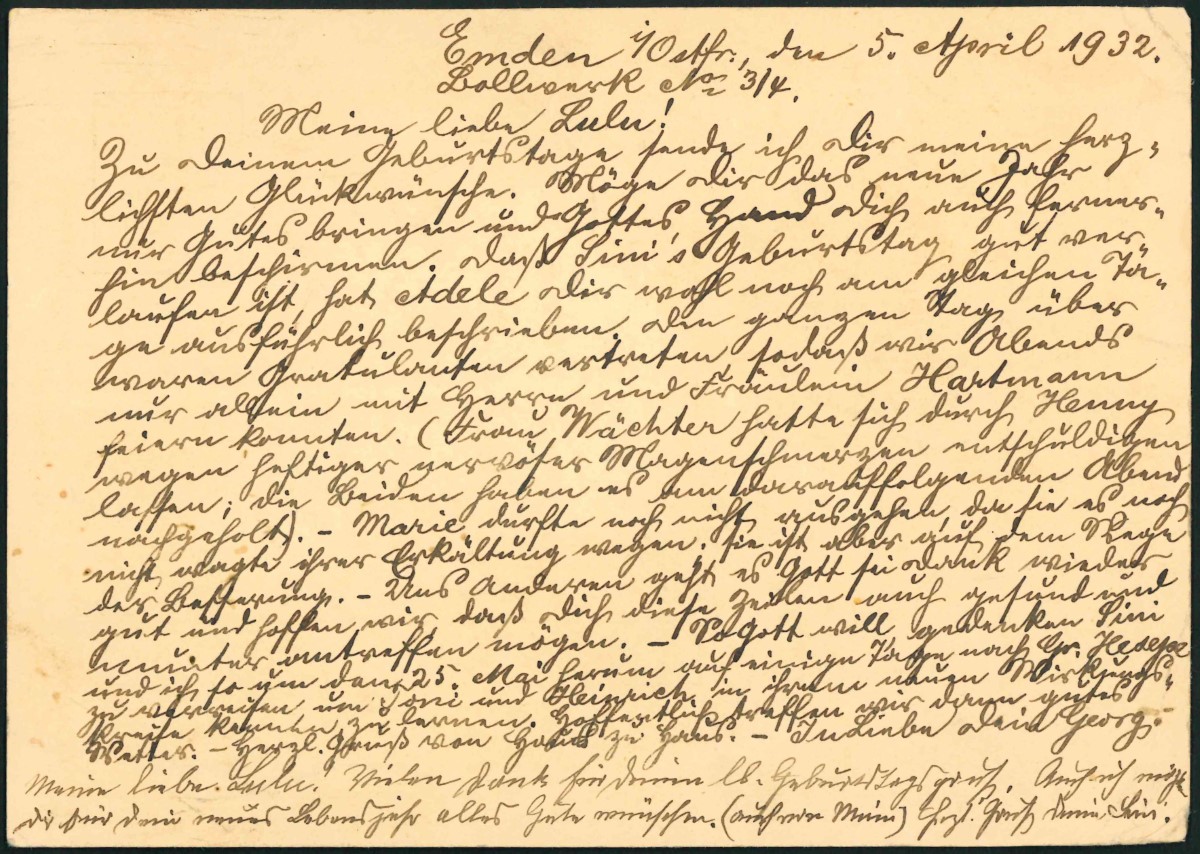 Emden i/Ostfr., den 5. April 1932.
Bollwerk No 3/4.
Meine liebe Lulu!
Zu Deinem Geburtstage sende ich Dir meine herz-
lichsten Glückwünsche. Möge Dir das neue Jahr
nur Gutes bringen und Gottes Hand Dich auch ferner-
hin beschirmen. Daß Sini's Geburtstag gut ver-
laufen ist, hat Adele Dir wohl noch am gleichen Ta-
ge ausführlich beschrieben. Den ganzen Tag über
waren Gratulanten vertreten, sodaß wir Abends
nur allein mit Herrn und Fräulein Hartmann
feiern konnten. (Frau Wächter hatte sich durch Henny
wegen heftiger nervöser Magenschmerzen entschuldigen
lassen; die Beiden haben es am darauffolgenden Abend
nachgeholt). – Marie durfte noch nicht ausgehen, da sie es noch
nicht wagte ihrer Erkältung wegen. Sie ist aber auf dem Wege
der Besserung. – Uns Anderen geht es Gott sei Dank wieder
gut und hoffen wir, daß Dich diese Zeilen auch gesund und
munter antreffen mögen. – So Gott will, gedenken Sini
und ich so um den 25. Mai herum auf einige Tage nach Gr. Hesepe
zu verreisen um Toni und Heinrich in ihrem neuen Wirkungs-
kreise kennen zu lernen. Hoffentlich treffen wir dann gutes
Wetter. – Herzl. Gruß von Haus zu Haus. – In Liebe Dein Georg.
Meine liebe Lulu! Vielen Dank für Deinen lb. Geburtstagsgruß. Auch ich möchte
Dir für Dein neues Lebensjahr alles Gute wünschen. (auch von Mimi) Herzl. Gruß Deine Sini.